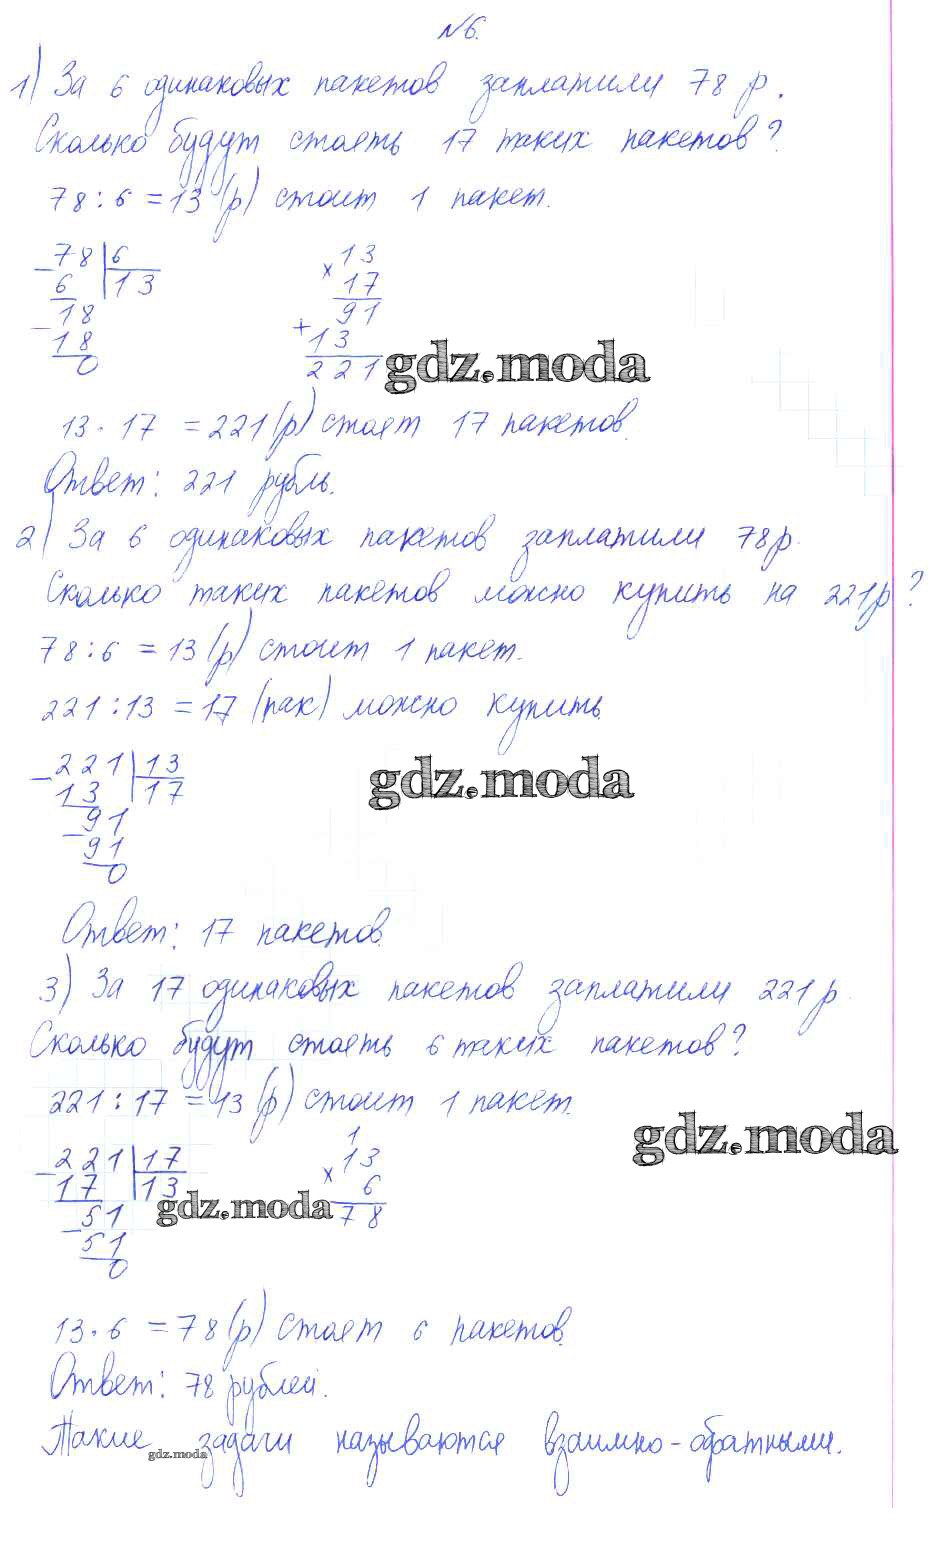 №6.
1) За 6 одинаковых пакетов заплатили 78 р.
Сколько будут стоять 17 таких пакетов?
78 : 6 = 13 (р) стоит 1 пакет.
78 6 13
- 6 × 17
13 18 91
- 18 + 13
0 221
gdz.moda
13 · 17 = 221 (р) стоят 17 пакетов.
Ответ: 221 рубль.
2) За 6 одинаковых пакетов заплатили 78 р.
Сколько таких пакетов можно купить на 221 р?
78 : 6 = 13 (р) стоит 1 пакет.
221 : 13 = 17 (пак) можно купить.
- 221 13
13 17
- 91
91
0
gdz.moda
Ответ: 17 пакетов.
3) За 17 одинаковых пакетов заплатили 221 р.
Сколько будут стоять 6 таких пакетов?
221 : 17 = 13 (р) стоит 1 пакет.
gdz.moda
1
- 221 17 × 13
17 13 6
- 51 78
51
0
gdz.moda
13 · 6 = 78 (р) стоят 6 пакетов.
Ответ: 78 рублей.
Такие задачи называются взаимно-обратными.
gdz.moda